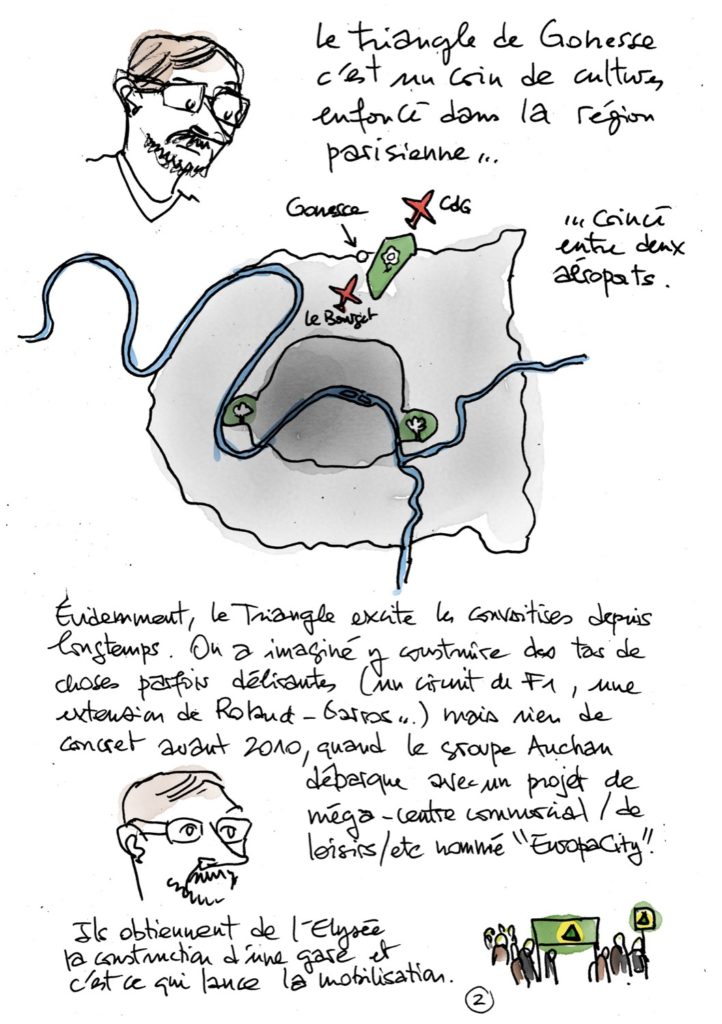 Le triangle de Gonesse
c'est un coin de cultures
enfoncé dans la région
parisienne...
Gonesse
CdG
... coincé
entre deux
aéroports.
Le Bourget
Évidemment, le Triangle excite les convoitises depuis
longtemps. On a imaginé y construire des tas de
choses parfois délirantes (un circuit de F1, une
extension de Roland-Garros...) mais rien de
concret avant 2010, quand le groupe Auchan
débarque avec un projet de
méga-centre commercial / de
loisirs/etc nommé "EuropaCity".
Ils obtiennent de l'Elysée
la construction d'une gare et
c'est ce qui lance la mobilisation.
2